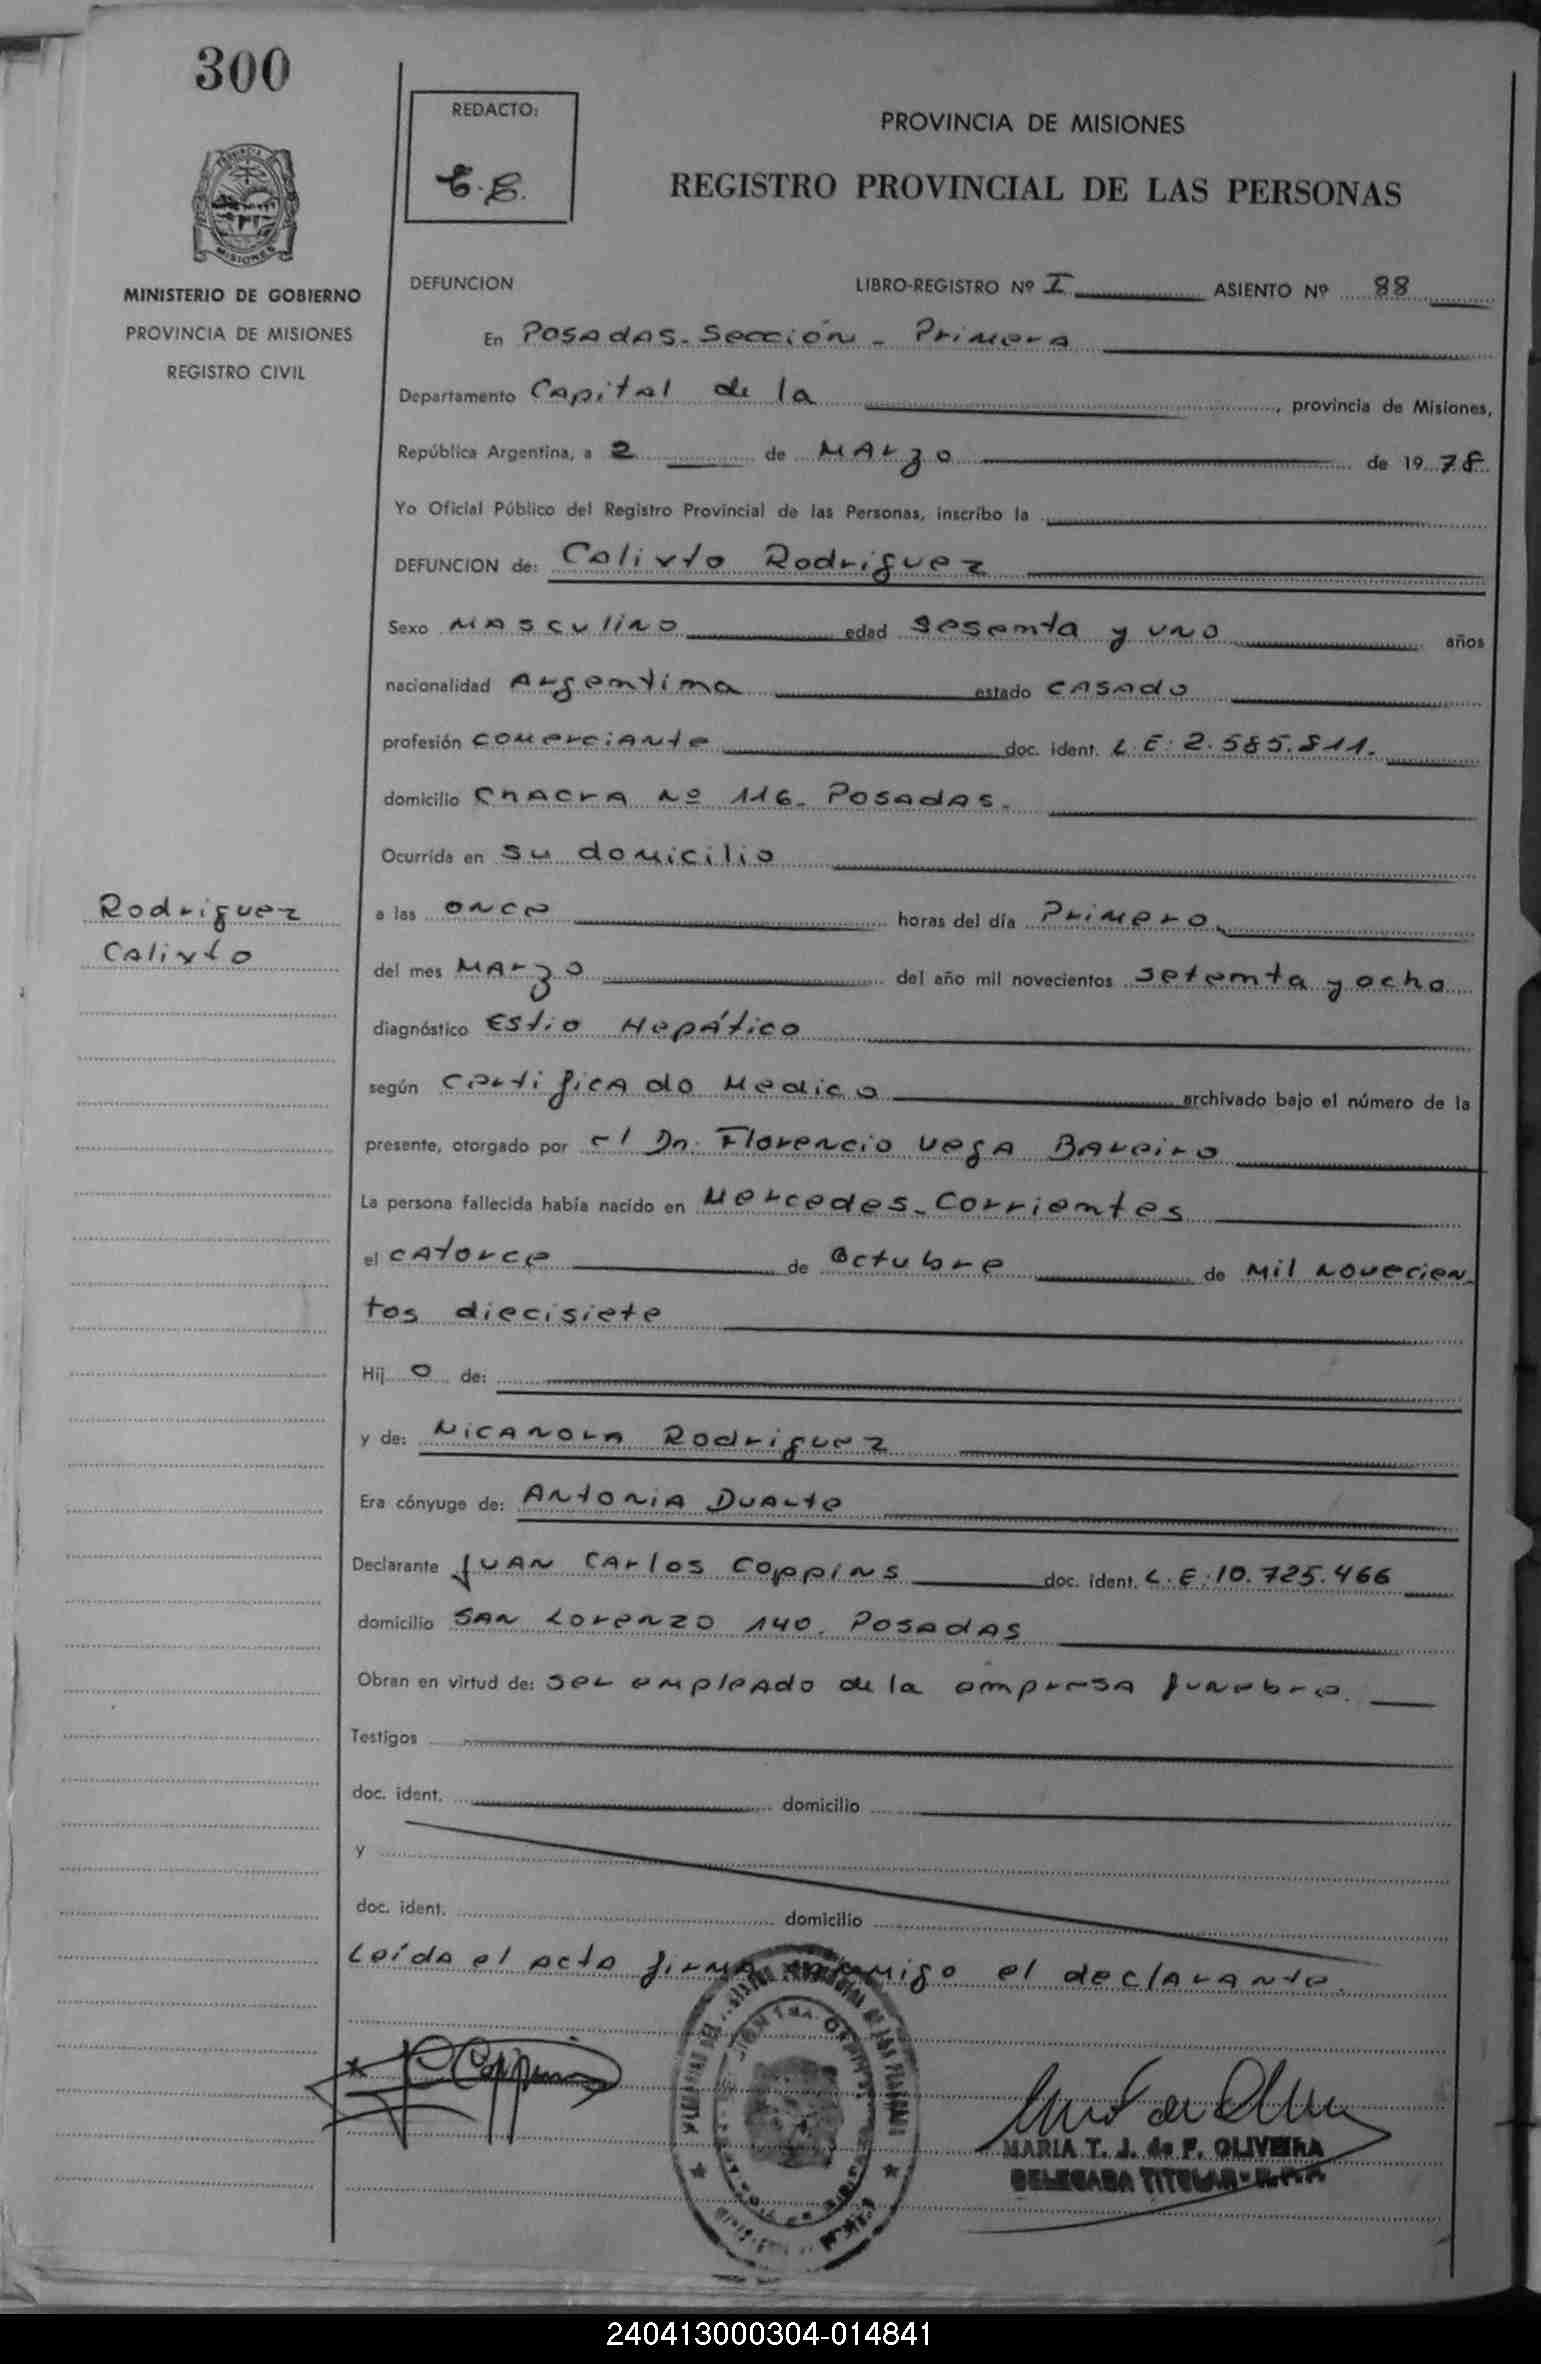 300
REDACTO:
PROVINCIA DE MISIONES
REGISTRO PROVINCIAL DE LAS PERSONAS
MINISTERIO DE GOBIERNO
PROVINCIA DE MISIONES
REGISTRO CIVIL
DEFUNCION LIBRO-REGISTRO Nº I ASIENTO Nº 88
En Posadas. Sección - Primera
Departamento Capital de la , provincia de Misiones,
República Argentina, a 2 de Marzo de 1978
Yo Oficial Público del Registro Provincial de las Personas, inscribo la
DEFUNCION de: Calixto Rodriguez
Sexo Masculino edad Sesenta y uno años
nacionalidad Argentina estado casado
profesión comerciante doc. ident. L.E: 2.585.811.
domicilio Chacra Nº 116. Posadas.
Ocurrida en su domicilio
Rodriguez
Calixto
a las once horas del día Primero
del mes Marzo del año mil novecientos setenta y ocho
diagnóstico Estio Hepático
según certificado Medico archivado bajo el número de la
presente, otorgado por el Dn. Florencio Vega Bareiro
La persona fallecida había nacido en Mercedes. Corrientes
el catorce de Octubre de Mil novecien
tos diecisiete
Hijo de:
y de: Nicanora Rodriguez
Era cónyuge de: Antonia Duarte
Declarante Juan Carlos Coppins doc. ident. L.E: 10.725.466
domicilio San Lorenzo 140. Posadas
Obran en virtud de: Ser empleado de la empresa funebre.
Testigos
doc. ident. domicilio
y
doc. ident. domicilio
Leída el acta firma conmigo el declarante.
MARIA T. J. de F. OLIVEIRA
DELEGADA TITULAR
240413000304-014841